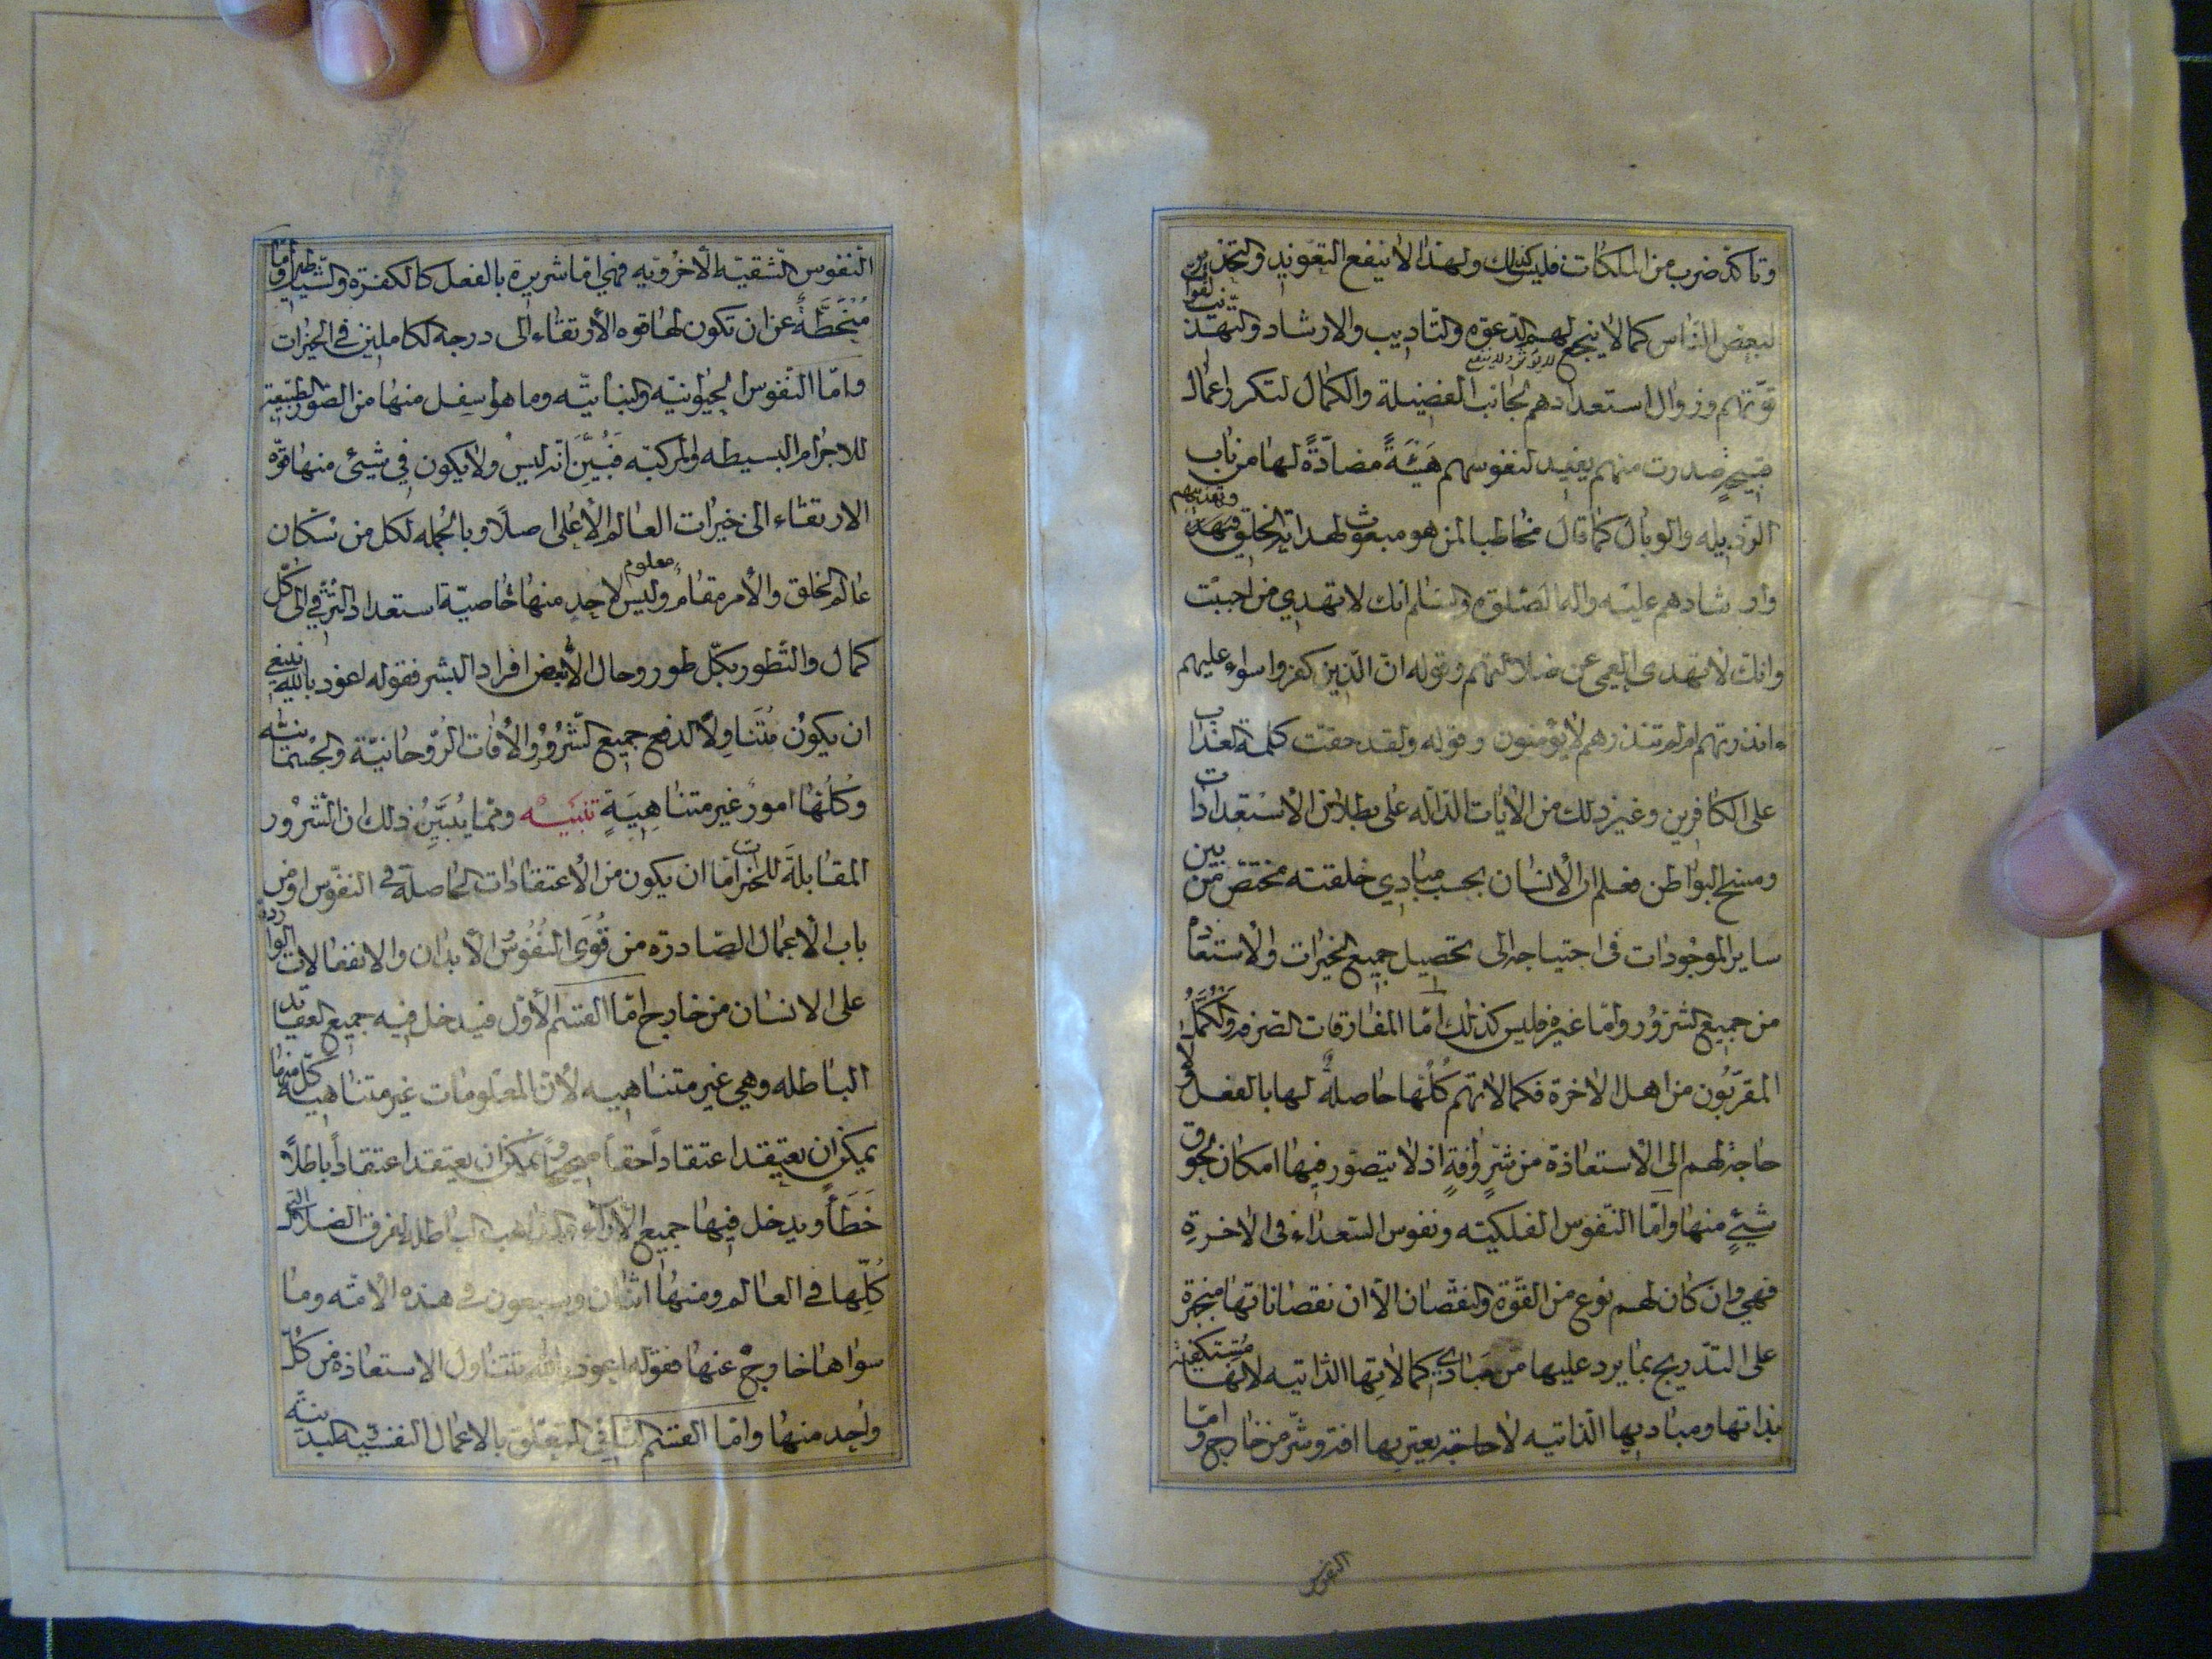 وتأكّد ضرب من الملكات فليس كذلك ولهذا لا ينفع التعويذ والتحذير
لبعض النّاس كما لا ينجع لهم الدعوة والتّاديب والارشاد والتهذيب لقوا
لا يؤثر ولا ينفع
قوّتهم وزوال استعدادهم لجانب الفضيلة والكمال لتكرر اعمال
قبيحةٍ صدرت منهم يفيد لنفوسهم هَيئَةً مضادّةً لها من باب
الرّذيله والوبال كما قال مخاطبا لمن هو مبعوث لهداية الخلق
وارشادهم عليه واله الصّلوة والسّلم انك لا تهدي من احببت
وانك لا تهدى العمى عن ضلالتهم وقوله انّ الّذين كفروا سواء عليهم
ءانذرتهم ام لم تنذرهم لا يؤمنون وقوله ولقد حقّت كلمة العذاب
على الكافرين وغير ذلك من الأيات الدّالّه على بطلان الاستعدادات
ومسخ البواطن فعلم ان الأنسان بحسب مبادي خلقته مختصّ من بين
ساير الموجودات فى احتياجه الى تحصيل جميع الخيرات والاستعاذة
من جميع الشرور وامّا غيره فليس كذلك امّا المفارقات الصّرفة والكمّل
المقرّبون من اهل الاخرة فكمالاتهم كُلُّها حاصلةٌ لها بالفعل فلا
حاجة لهم الى الأستعاذة من شرٍّ وأفةٍ اذ لا يتصوّر فيها امكان لحوق
شيئٍ منها وامّا النّفوس الفلكيّته ونفوس السّعداء فى الاخرةِ
فهي وان كان لهم نوع من القوّة والنقصان الاّ ان نقصاناتها منجبرة
على التدريج بما يرد عليها من مَبادي كمالاتِها الذّاتيه لانها مُستكفية
بذاتها ومباديها الذّاتيه لا حاجة يعتريها افة وشرّ من خارج وامّا
النفوس
النفوس الشّقيّه الأخرويّه فهي امّا شريرة بالفعل كالكفرة والشّياطين وامّا
مُنحَطَّةً عن ان تكون لها قوه الأرتقاء الى درجة الكاملين في الخيرات
وامّا النّفوس الحيوانيّه والنباتيّه وما هو أسفل منها من الصّور الطّبيعية
للاجرام البسيطه والمركبّه فبُيِّنَ انّه ليس ولا يكون في شيئ منها قوّه
الارتقاء الى خيرات العالم الأعلى اصلًا وبالجُمله لكل من سُكّان
عالم الخلق والأمر مقام معلوم وليس لاحدٍ منها خاصيّة استعداد الترقّي الى كلّ
كمال والتّطور بكلّ طور وحال الّا لبعض افراد البشر فقوله اعوذ بالله ينبغي
ان يكون مُتَناولًا لدفع جميع الشّرُور والأفات الرّوحانيّة والجسمانيّه
وكُلُّها امورٌ غير متناهِيَةٍ تنبيه وممّا يُبيِّنُ ذلك ان الشّرور
المقابلة للخيرات امّا ان يكون من الأعتقادات الحاصلة في النفوس او من
باب الأعمال الصّادرة من قُوَى النّفُوس الأبدان والانفعالات الواردة
على الانسان من خارج امّا القسم الأوّل فيدخل فيه جميع العقايد
الباطله وهي غير متناهيه لأنّ المعلومات غير متناهية كلّ منها
يمكن ان يعتقد اعتقاداً حقاً صحيحاً ويمكن ان يعتقد اعتقاداً باطلًا
خَطَأً ويدخل فيها جميع الأراء والمذاهب الباطلة لفرق الضلال الّتي
كُلِّها في العالم ومنها اثنان وسبعون في هذه الامّه وما
سواها خارجٌ عنها فقوله اعوذ بالله يتناول الاستعاذة من كلّ
واحد منها وامّا القسم الثاني المتعلّق بالاعمال النفسيّه البدنيّه